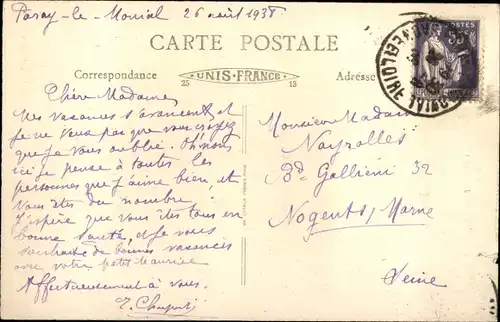 Paray-le-Monial 26 août 1938
CARTE POSTALE
Correspondance
UNIS-FRANCE
25
13
Adresse
POSTES
Chère Madame,
Mes vacances s'avancent et
je ne veux pas que vous croyez
que je vous oublie. Oh non,
ici je pense à toutes les
personnes que j'aime bien, et
vous êtes du nombre.
J'espère que vous êtes tous en
bonne santé, et je vous
souhaite de bonnes vacances
avec votre petit Maurice
Affectueusement à vous.
Monsieur Madame
Nayrolles
Bd Galliéni 32
Nogent s/ Marne
Seine